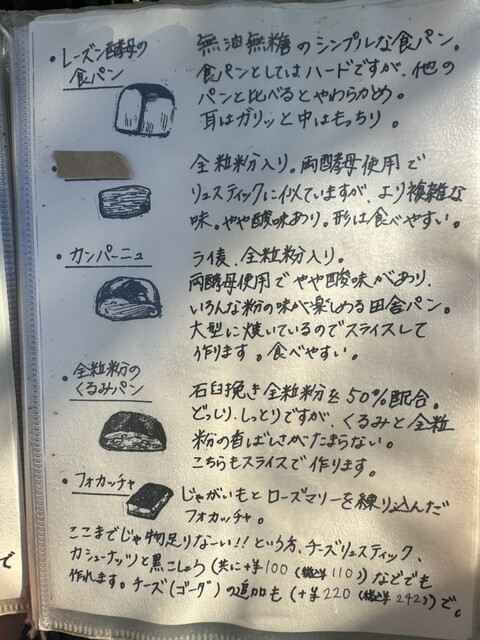 ・レーズン酵母の
食パン
無油無糖のシンプルな食パン。
食パンとしてはハードですが、他の
パンと比べるとやわらかめ。
耳はガリッと中はもっちり。
全粒粉入り。両酵母使用で
リュスティックに似ていますが、より複雑な
味。やや酸味あり。形は食べやすい。
・カンパーニュ
ライ麦、全粒粉入り。
両酵母使用でやや酸味があり、
いろんな粉の味が楽しめる田舎パン。
大型に焼いているのでスライスして
作ります。食べやすい。
・全粒粉の
くるみパン
石臼挽き全粒粉を50%配合。
どっしり、しっとりですが、くるみと全粒
粉の香ばしさがたまらない。
こちらもスライスで作ります。
・フォカッチャ
じゃがいもとローズマリーを練り込んだ
フォカッチャ。
ここまでじゃ物足りなーい!!という方、チーズリュスティック、
カシューナッツと黒こしょう(共に+¥100(税込¥110))などでも
作れます。チーズ(ゴーダ)の追加も(+¥220(税込¥242))で。
で